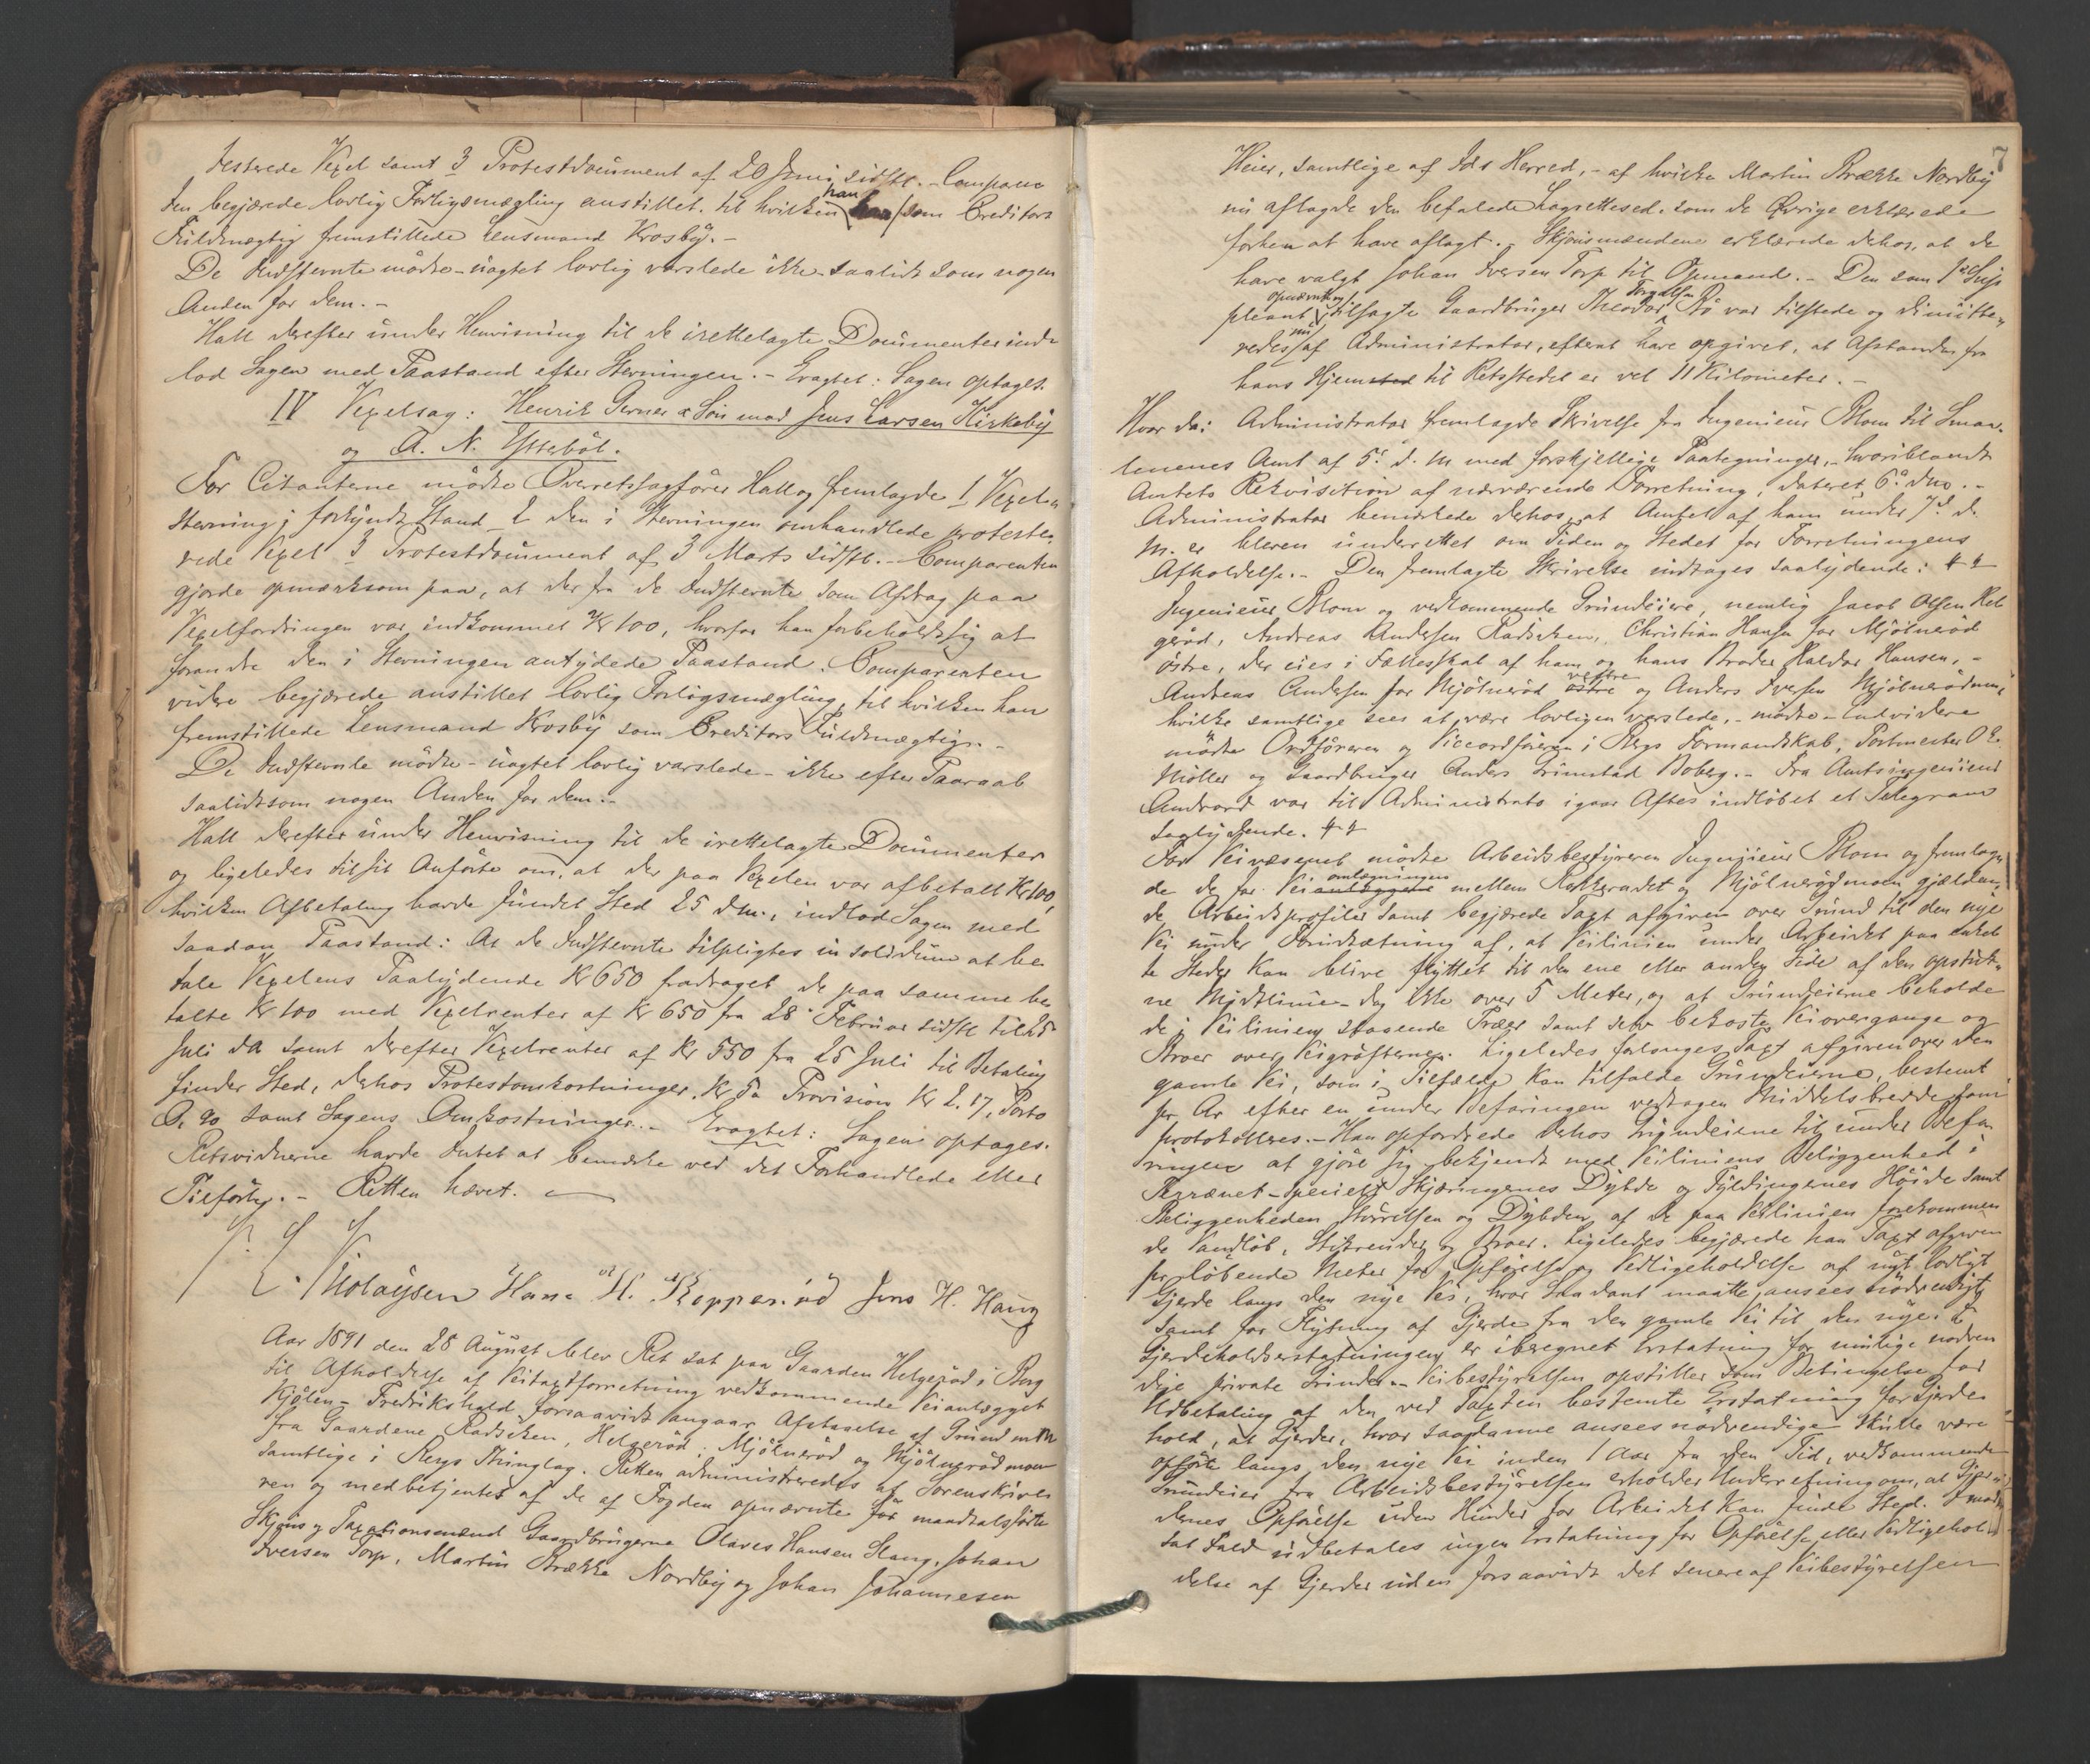 testerede Vexel samt 3 Protestdocument af 20 Juni sidstl. - Comparen
ten begjærede lovlig Forligsmægling anstillet, til hvilken han som Creditors
Fuldmægtig fremstillede Lensmand Krosby. -
De Indstevnte mødte - uagtet lovlig varslede ikke - saalidt som nogen
Anden for dem. -
Hall derefter under Henvisning til de irettelagte Documenter ind-
lod Sagen med Paastand efter Stevningen. - Eragtet: Sagen optages.
IV Vexelsag: Henrik Gerner & Søn mod Jens Larsen Kirkeby
og A. N. Ystebøl.
For Citanterne mødte Overretssagfører Hall og fremlagde 1 Vexel-
stevning i forkyndt Stand 2 den i Stevningen omhandlede proteste-
rede Vexel 3 Protestdocument af 3 Marts sidstl. - Comparenten
gjorde opmærksom paa, at der fra de Indstevnte som Afdrag paa
Vexelfordringen var indkommet Kr 100, hvorfor han forbeholdt sig at
forandre den i Stevningen antydede Paastand. Comparenten
videre begjærede anstillet lovlig Forligsmægling, til hvilken han
fremstillede Lensmand Krosby som Creditors Fuldmægtig. -
De Indstevnte mødte - uagtet lovlig varslede - ikke efter Paaraab
saalidtsom nogen Anden for dem. -
Hall derefter under Henvisning til de irettelagte Documenter
og ligeledes til sit Anførte om, at der paa Vexelen var afbetalt Kr 100,
hvilken Afbetaling havde fundet Sted 25 dms., indlod Sagen med
saadan Paastand: At de Indstevnte tilpligtes in solidum at be-
tale Vexelens Paalydende Kr 650 fradraget de paa samme be
talte Kr 100 med Vexelrenter af Kr 650 fra 28 Februar sidstl til 25
Juli da samt derefter Vexelrenter af Kr 550 fra 25 Juli til Betaling
finder Sted, dehos Protestomkostninger, Kr Provision Kr 2.17, Porto
0,20 samt Sagens Omkostninger. - Eragtet: Sagen optages.
Retsvidnerne havde Intet at bemærke ved det Forhandlede eller
Tilførte. - Retten hævet.
Nicolaysen Hans H. Kopperud Jens H. Haug
Aar 1891 den 28 August blev Ret sat paa Gaarden Helgerød i Berg
til Afholdelse af Veitaxtforretning vedkommende Veianlægget
Kjølen - Fredrikshald forsaavidt angaar Afstaaelse af Grund m.m
fra Gaardene Radseken, Helgerød, Mjølnerød og Mjølnerødmoen
samtlige i Bergs Thinglag. Retten administreredes af Sorenskrive
ren og medbetjentes af de af Fogden opnævnte før mandtalsførte
Skjøns og Taxationsmænd Gaardbrugerne Olaves Hansen Stang, Johan
Iversen Torp, Martin Brække Nordby og Johan Johannesen
7
Heier, samtlige af Ids Herred, - af hvilke Martin Brække Nordby
nu aflagde den befalede Lagrettesed, som de Øvrige erklærede
forhen at have aflagt. - Skjønsmændene erklærede dehos, at de
have valgt Johan Iversen Torp til Opmand. - Den som 1ste Sup
opnævnte og Torgalsen
pleant tilsagte Gaardbruger Theodor Bø var tilstede og dimitte-
nu
redes af Administrator, efterat have opgivet, at Afstanden fra
hans Hjemsted til Retsstedet er vel 11 Kilometer. -
Hvor da: Administrator fremlagde Skrivelse fra Ingeniør Blom til Smaa-
lenenes Amt af 5te d. M med forskjellige Paategninger, - hvoriblandt
Amtets Rekvisition af nærværende Forretning, dateret 6te dms. -
Administrator bemærkede dehos, at Amtet af ham under 7de d.
M. er bleven underrettet om Tiden og Stedet for Forretningens
Afholdelse. - Den fremlagte Skrivelse indtages saalydende:
Ingeniør Blom og vedkommende Grundeiere, nemlig Jacob Olsen Hel
gerød, Andreas Andersen Radseken, Christian Hansen for Mjølnerød
østre, der eies i Fællesskab af ham og hans Broder Haldor Hansen, -
vestre
Andreas Andersen for Mjølnerød østre og Anders Iversen Mjølnerødmoen
hvilke samtlige sees at være lovligen varslede, - mødte - Endvidere
mødte Ordføreren og Viceordføreren i Bergs Formandskab, Postmester O. E.
Møller og Gaardbruger Anders Grimstad Boberg. - Fra Amtsingeniør
var til Administrator igaar Aftes indløbet et Telegram
saalydende.
For Veivæsenet mødte Arbeidsbestyreren Ingeniør Blom og fremlag
omlægningen
de de for Veianlæggene mellem Rokkevadet og Mjølnerødmoen gjælden-
de Arbeidsprofiler samt begjærede Taxt afgiven over Grund til den nye
Vei under Forudsætning af, at Veilinien under Arbeidet paa enkel
te Steder kan blive flyttet til den ene eller anden Side af den opstuk-
ne Midtlinie - dog ikke over 5 Meter, og at Grundeierne beholde
de i Veilinien staaende Træer samt selv bekoster Veiovergange og
Broer over Veigrøfterne. Ligeledes forlanges Taxt afgiven over den
gamle Vei, som i Tilfælde kan tilfalde Grundeierne, bestemt
pr Ar efter en under Befaringen vedtagen Middelsbredde som
protokolleres. - Han opfordrede dehos Grundeierne til under Befa-
ringen at gjøre sig bekjendt med Veiliniens Beliggenhed i
Terrænet - specielt Skjæringenes Dybde og Fyldingernes Høide samt
Beliggenheden Størrelsen og Dybden af de paa Veilinien forekommen
de Vandløb, Stikrender og Broer. Ligeledes begjærede han Taxt afgiven
pr løbende Meter for Opførelse og Vedligeholdelse af nyt lovligt
Gjerde langs den nye Vei, hvor Saadant maatte ansees nødvendigt
samt for Flytning af Gjerde fra den gamle Vei til den nye. I
Gjerdeholdserstatningen er iberegnet Erstatning for mulige nødven
dige private Grinder. - Veibestyrelsen opstiller som Betingelse for
Udbetaling af den ved Taxten bestemte Erstatning for Gjerde-
hold, at Gjerder, hvor saadanne ansees nødvendige skulle være
opførte langs den nye Vei inden 1 Aar fra den Tid, vedkommende
Grundeier fra Arbeidsbestyrelsen erholder Underretning om, at Gjer
denes Opførelse uden Hinder for Arbeidet kan finde Sted. I mod
sat Fald udbetales ingen Erstatning for Opførelse eller Vedligehol
delse af Gjerder uden forsaavidt det senere af Veibestyrelsen